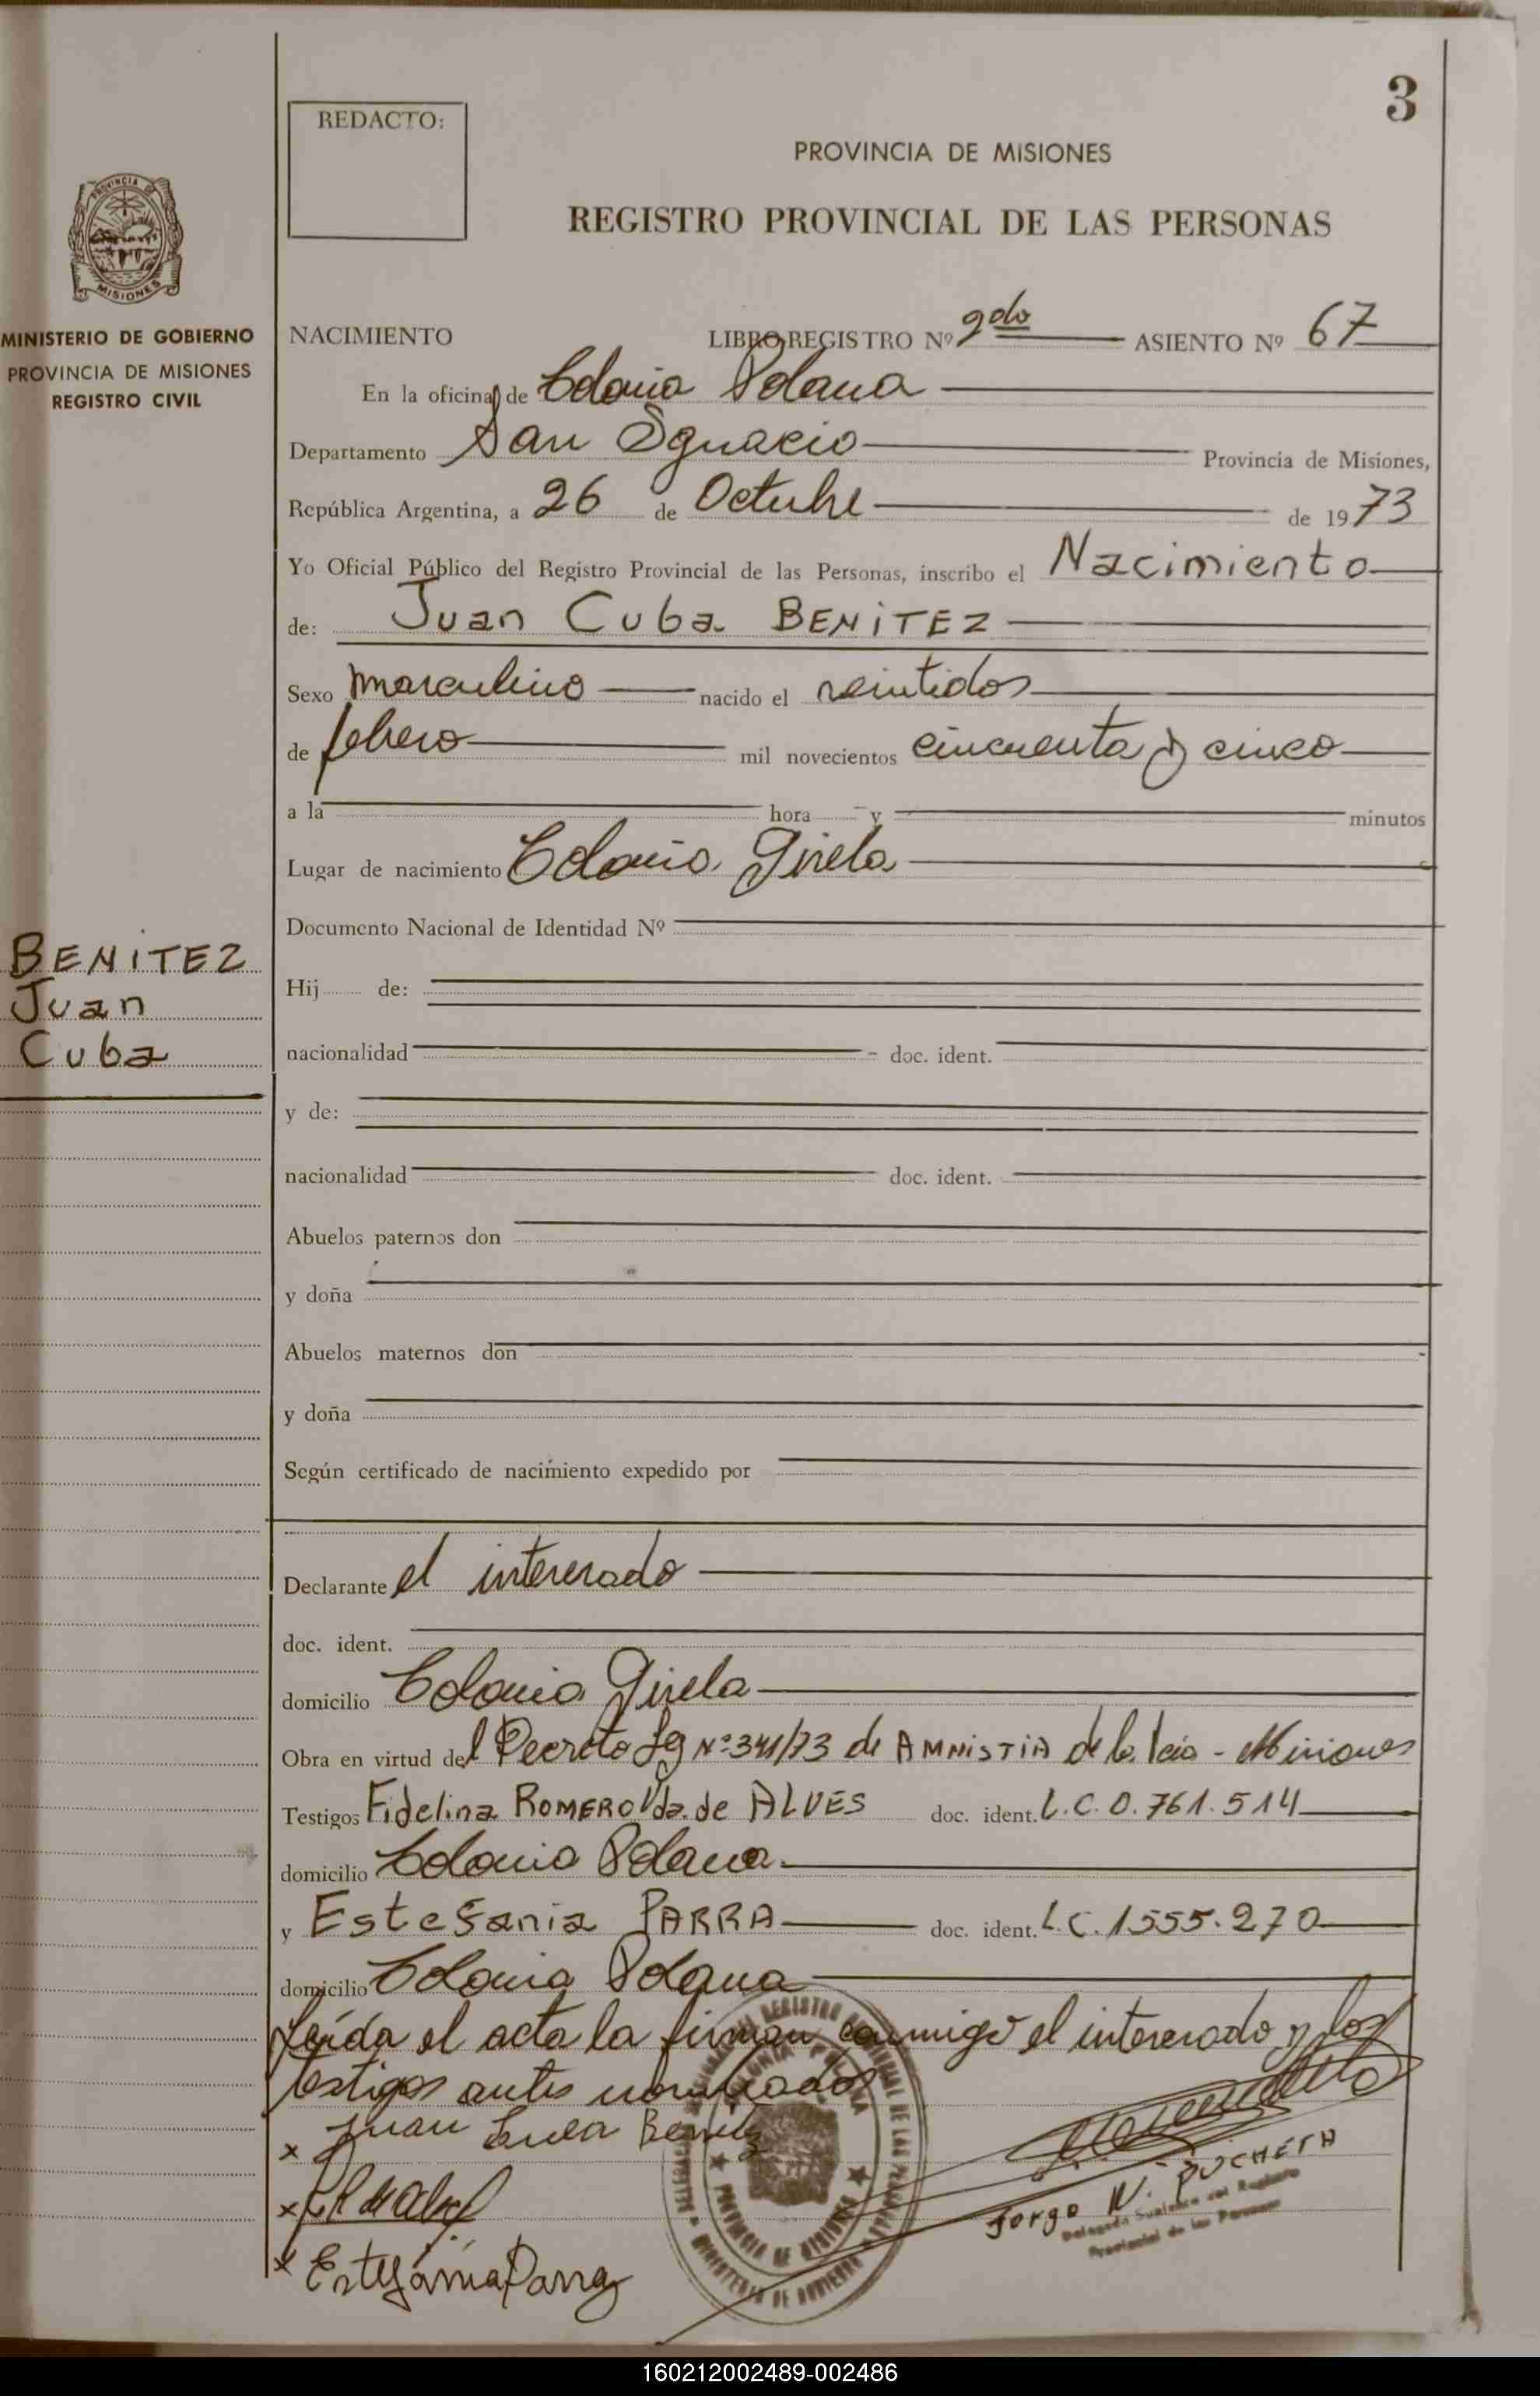 3
REDACTO:
PROVINCIA DE MISIONES
REGISTRO PROVINCIAL DE LAS PERSONAS
PROVINCIA DE
MISIONES
MINISTERIO DE GOBIERNO
PROVINCIA DE MISIONES
REGISTRO CIVIL
BENITEZ
Juan
Cuba
NACIMIENTO LIBRO REGISTRO Nº 2do ASIENTO Nº 67
En la oficina de Colonia Polana
Departamento San Ignacio Provincia de Misiones,
República Argentina, a 26 de Octubre de 1973
Yo Oficial Público del Registro Provincial de las Personas, inscribo el Nacimiento
de: Juan Cuba BENITEZ
Sexo masculino nacido el veintidos
de febrero mil novecientos cincuenta y cinco
a la hora y minutos
Lugar de nacimiento Colonia Gisela
Documento Nacional de Identidad Nº
Hij de:
nacionalidad doc. ident.
y de:
nacionalidad doc. ident.
Abuelos paternos don
y doña
Abuelos maternos don
y doña
Según certificado de nacimiento expedido por
Declarante el interesado
doc. ident.
domicilio Colonia Gisela
Obra en virtud del Decreto Lg Nº 341/73 de AMNISTIA de la Pcia - Misiones
Testigos Fidelina ROMERO Vda. de ALVES doc. ident. L.C. 0.761.514
domicilio Colonia Polana
y Estefania PARRA doc. ident. L.C. 1555.270
domicilio Colonia Polana
Leída el acta la firman conmigo el interesado y los
testigos antes nombrados
x Juan Cuba Benitez
x
x Estefania Parra
Jorge N. PUCHETA
Delegado Suplente del Registro
Provincial de las Personas
PROVINCIA DE MISIONES
MINISTERIO DE GOBIERNO
160212002489-002486